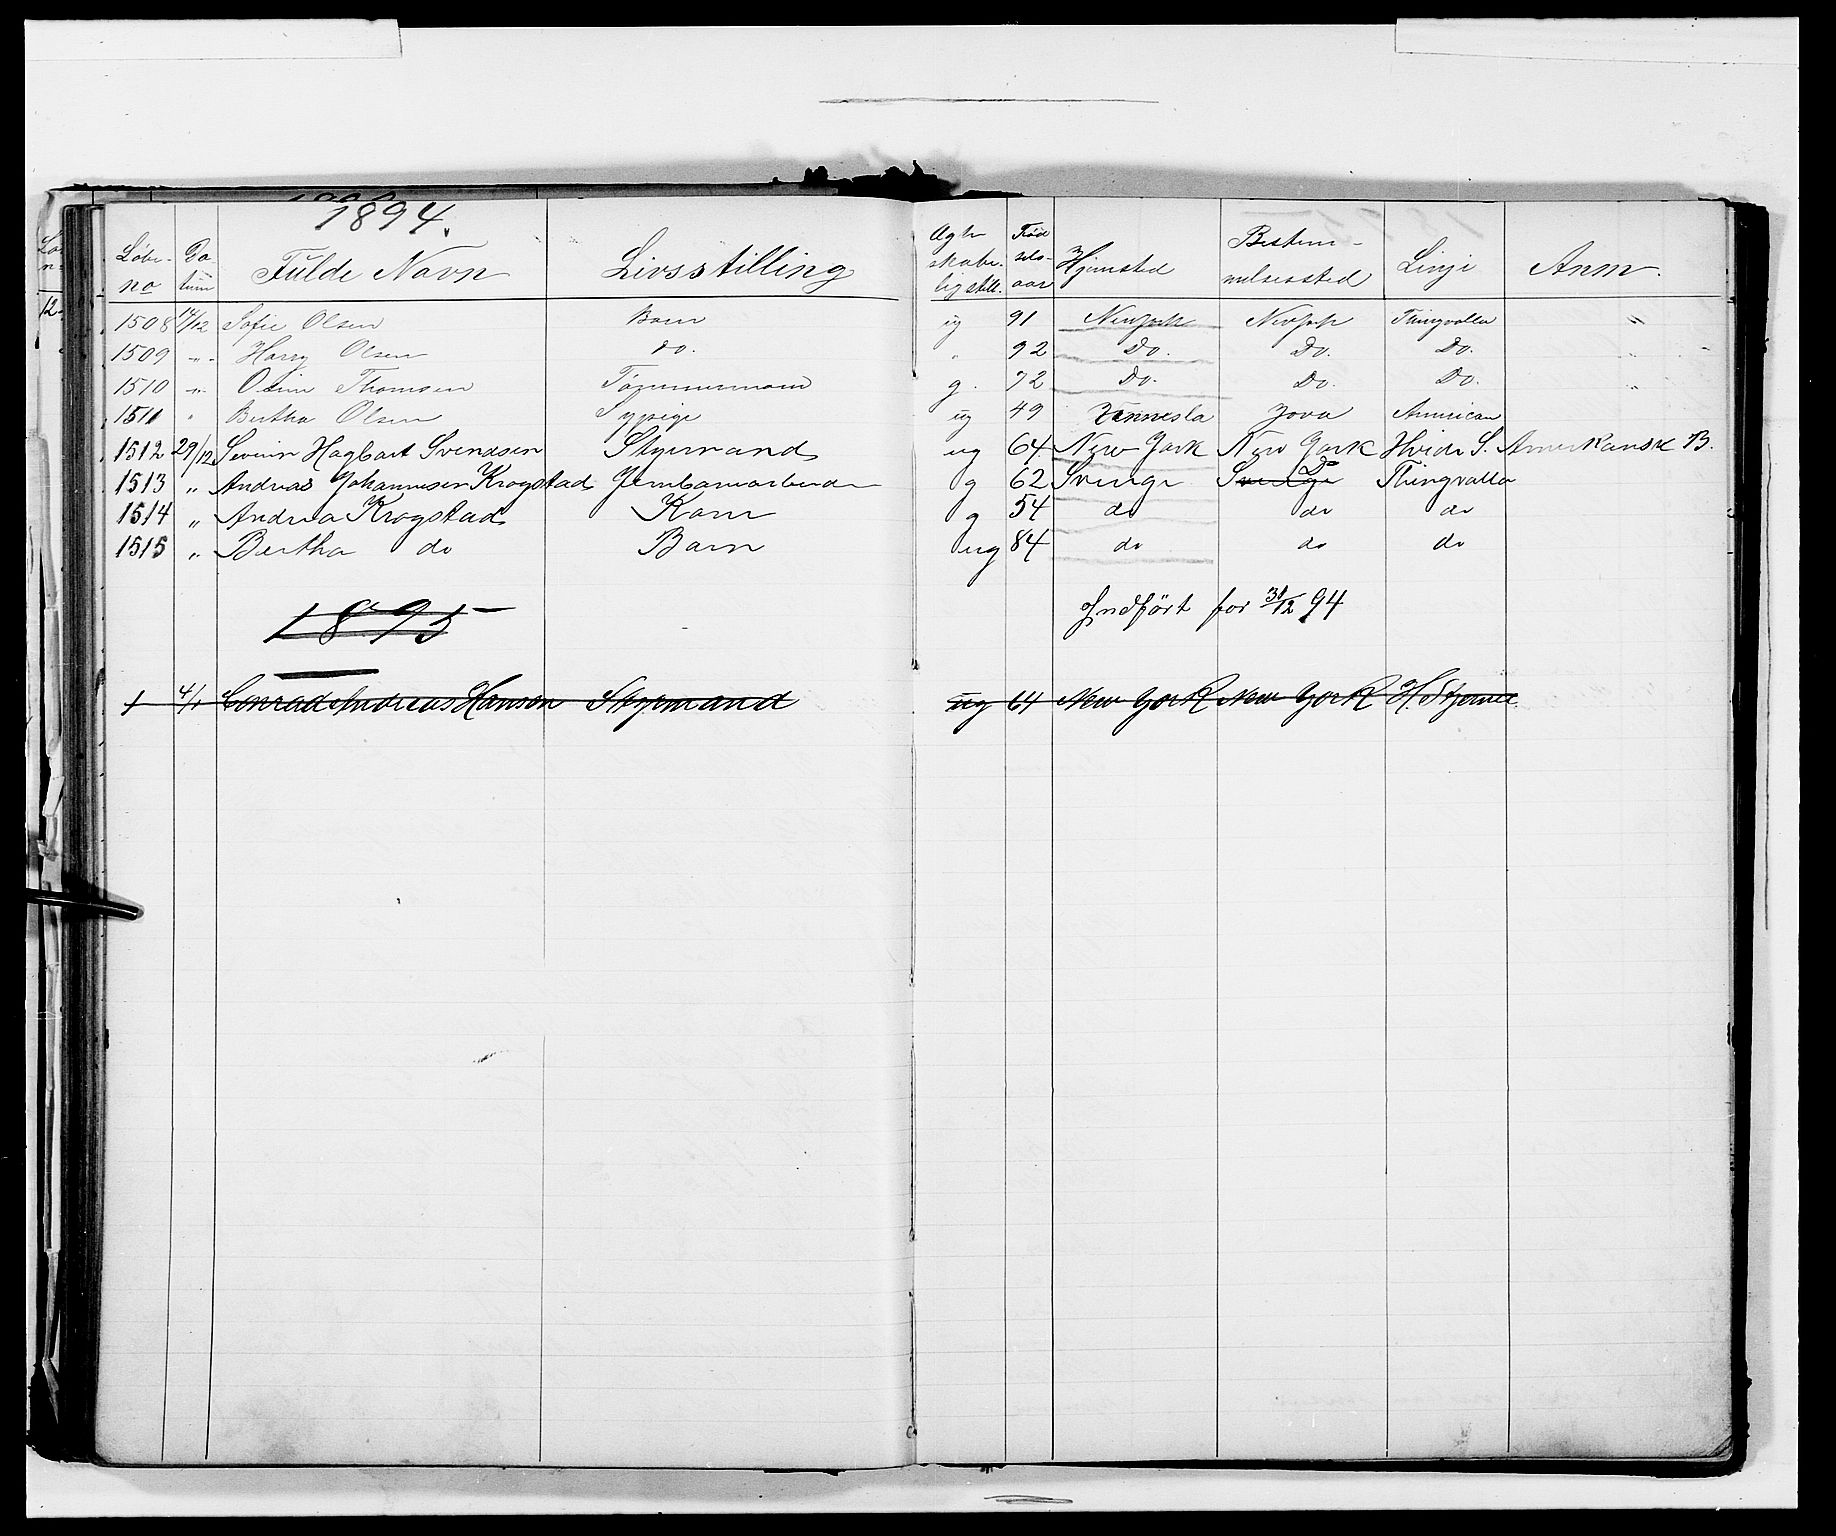 1894.
Løbe- Da Fulde Navn Livsstilling Ægte Fød Hjemsted Bestem- Linje Anm.
no tum skabe- sels- melsessted
ligstill. aar
1508 14/12 Sofie Olsen Barn ug 91 Newyork Newyork Thingvalla "
1509 " Harry Olsen do. " 92 Do. Do. Do. "
1510 " Thomsen Tømmermand g. 72 Do. Do. Do. "
1511 " Bertha Olsen Sypige ug 49 Vennesla Jova American
1512 29/12 Severin Hagbart Svendsen Styrmand ug 64 New York New York Hvide S. Amerikansk B.
1513 " Andreas Johannesen Krogstad Jernbanearbeider g 62 Sverige Sverige Do Thingvalla
1514 " Andrea Krogstad Kone g 54 do do do
1515 " Bertha do Barn ug 84 do do do
Indført for 31/12 94
1895
1 4/1 Conrad Andreas Hanson Styrmand ug 64 New York New York H. Stjerne